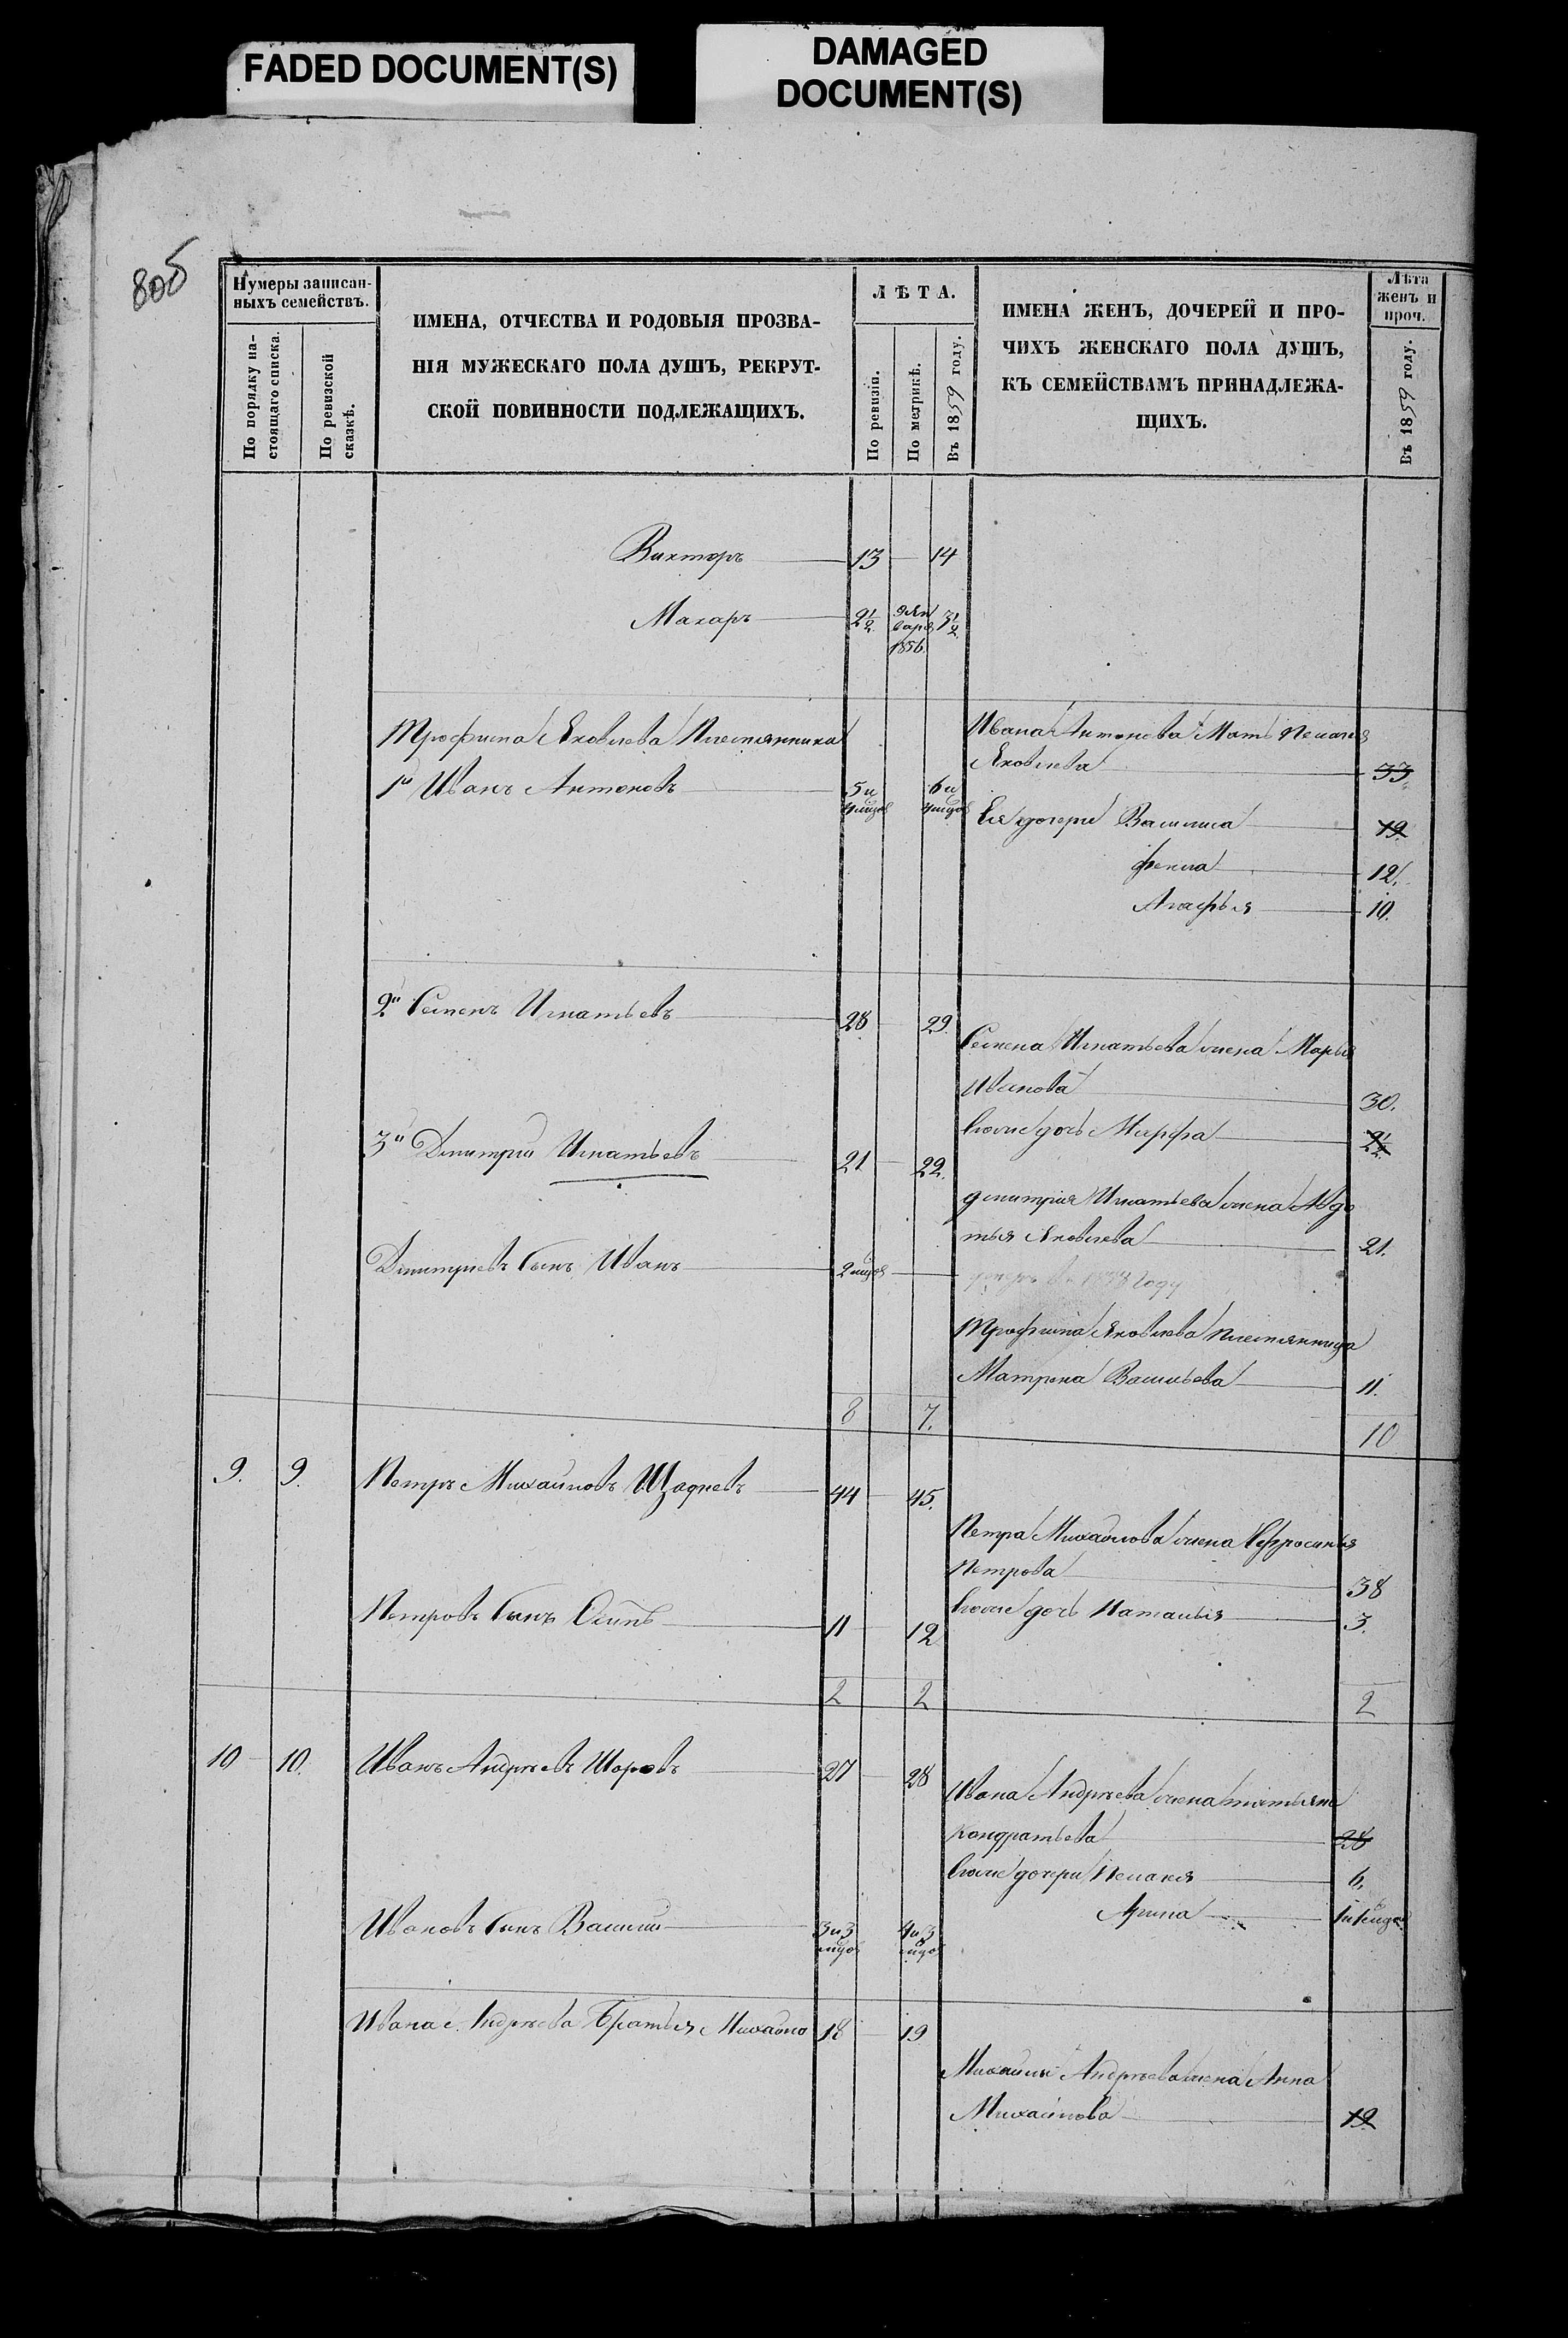 FADED DOCUMENT(S)
DAMAGED
DOCUMENT(S)
80б
Нумеры записан-
ныхъ семействъ.
По порядку на-
стоящаго списка.
По ревизской
сказкѣ.
ИМЕНА, ОТЧЕСТВА И РОДОВЫЯ ПРОЗВА-
НІЯ МУЖЕСКАГО ПОЛА ДУШЪ, РЕКРУТ-
СКОЙ ПОВИННОСТИ ПОДЛЕЖАЩИХЪ.
ЛѢТА.
По ревизіи.
По метрикѣ.
Въ 1859 году.
ИМЕНА ЖЕНЪ, ДОЧЕРЕЙ И ПРО-
ЧИХЪ ЖЕНСКАГО ПОЛА ДУШЪ,
КЪ СЕМЕЙСТВАМЪ ПРИНАДЛЕЖА-
ЩИХЪ.
Лѣта
женъ и
проч.
Въ 1859 году.
Викторъ 13 14
Макаръ 2½ 3½
1856.
Трофима Яковлева Племянники
1й Иванъ Антоновъ 5 и 6 и
Ивана Антонова Мать Пелагея
Яковлева 33.
Ея дочери Василиса 19.
Фекла 12.
Агафья 10.
2й Семенъ Игнатьевъ 28 29.
Семена Игнатьева жена Марья
Иванова 30.
Ихже дочь Марфа 2½
3й Дмитрий Игнатьевъ 21 22.
Дмитрия Игнатьева жена Авдо
тья Яковлева 21.
Дмитриевъ Сынъ Иванъ
умеръ въ 1858 году
Трофима Яковлева племянница
Матрена Васильева 11.
8 7. 10
9. 9. Петръ Михайловъ Щадневъ 44 45.
Петра Михайлова жена Ефросинья
Петрова 38
Петровъ Сынъ Осипъ 11 12
Ихже дочь Наталья 3.
2 2 2
10 10. Иванъ Андреевъ Шоровъ 27 28
Ивана Андреева жена татьяна
Кондратьева 28
Ихже дочери Пелагея 6.
Ивановъ Сынъ Василий 3 и 3 4 и 3
Арина
Ивана Андреева Братья Михайло 18 19
Михайлы Андреева жена Анна
Михайлова 19